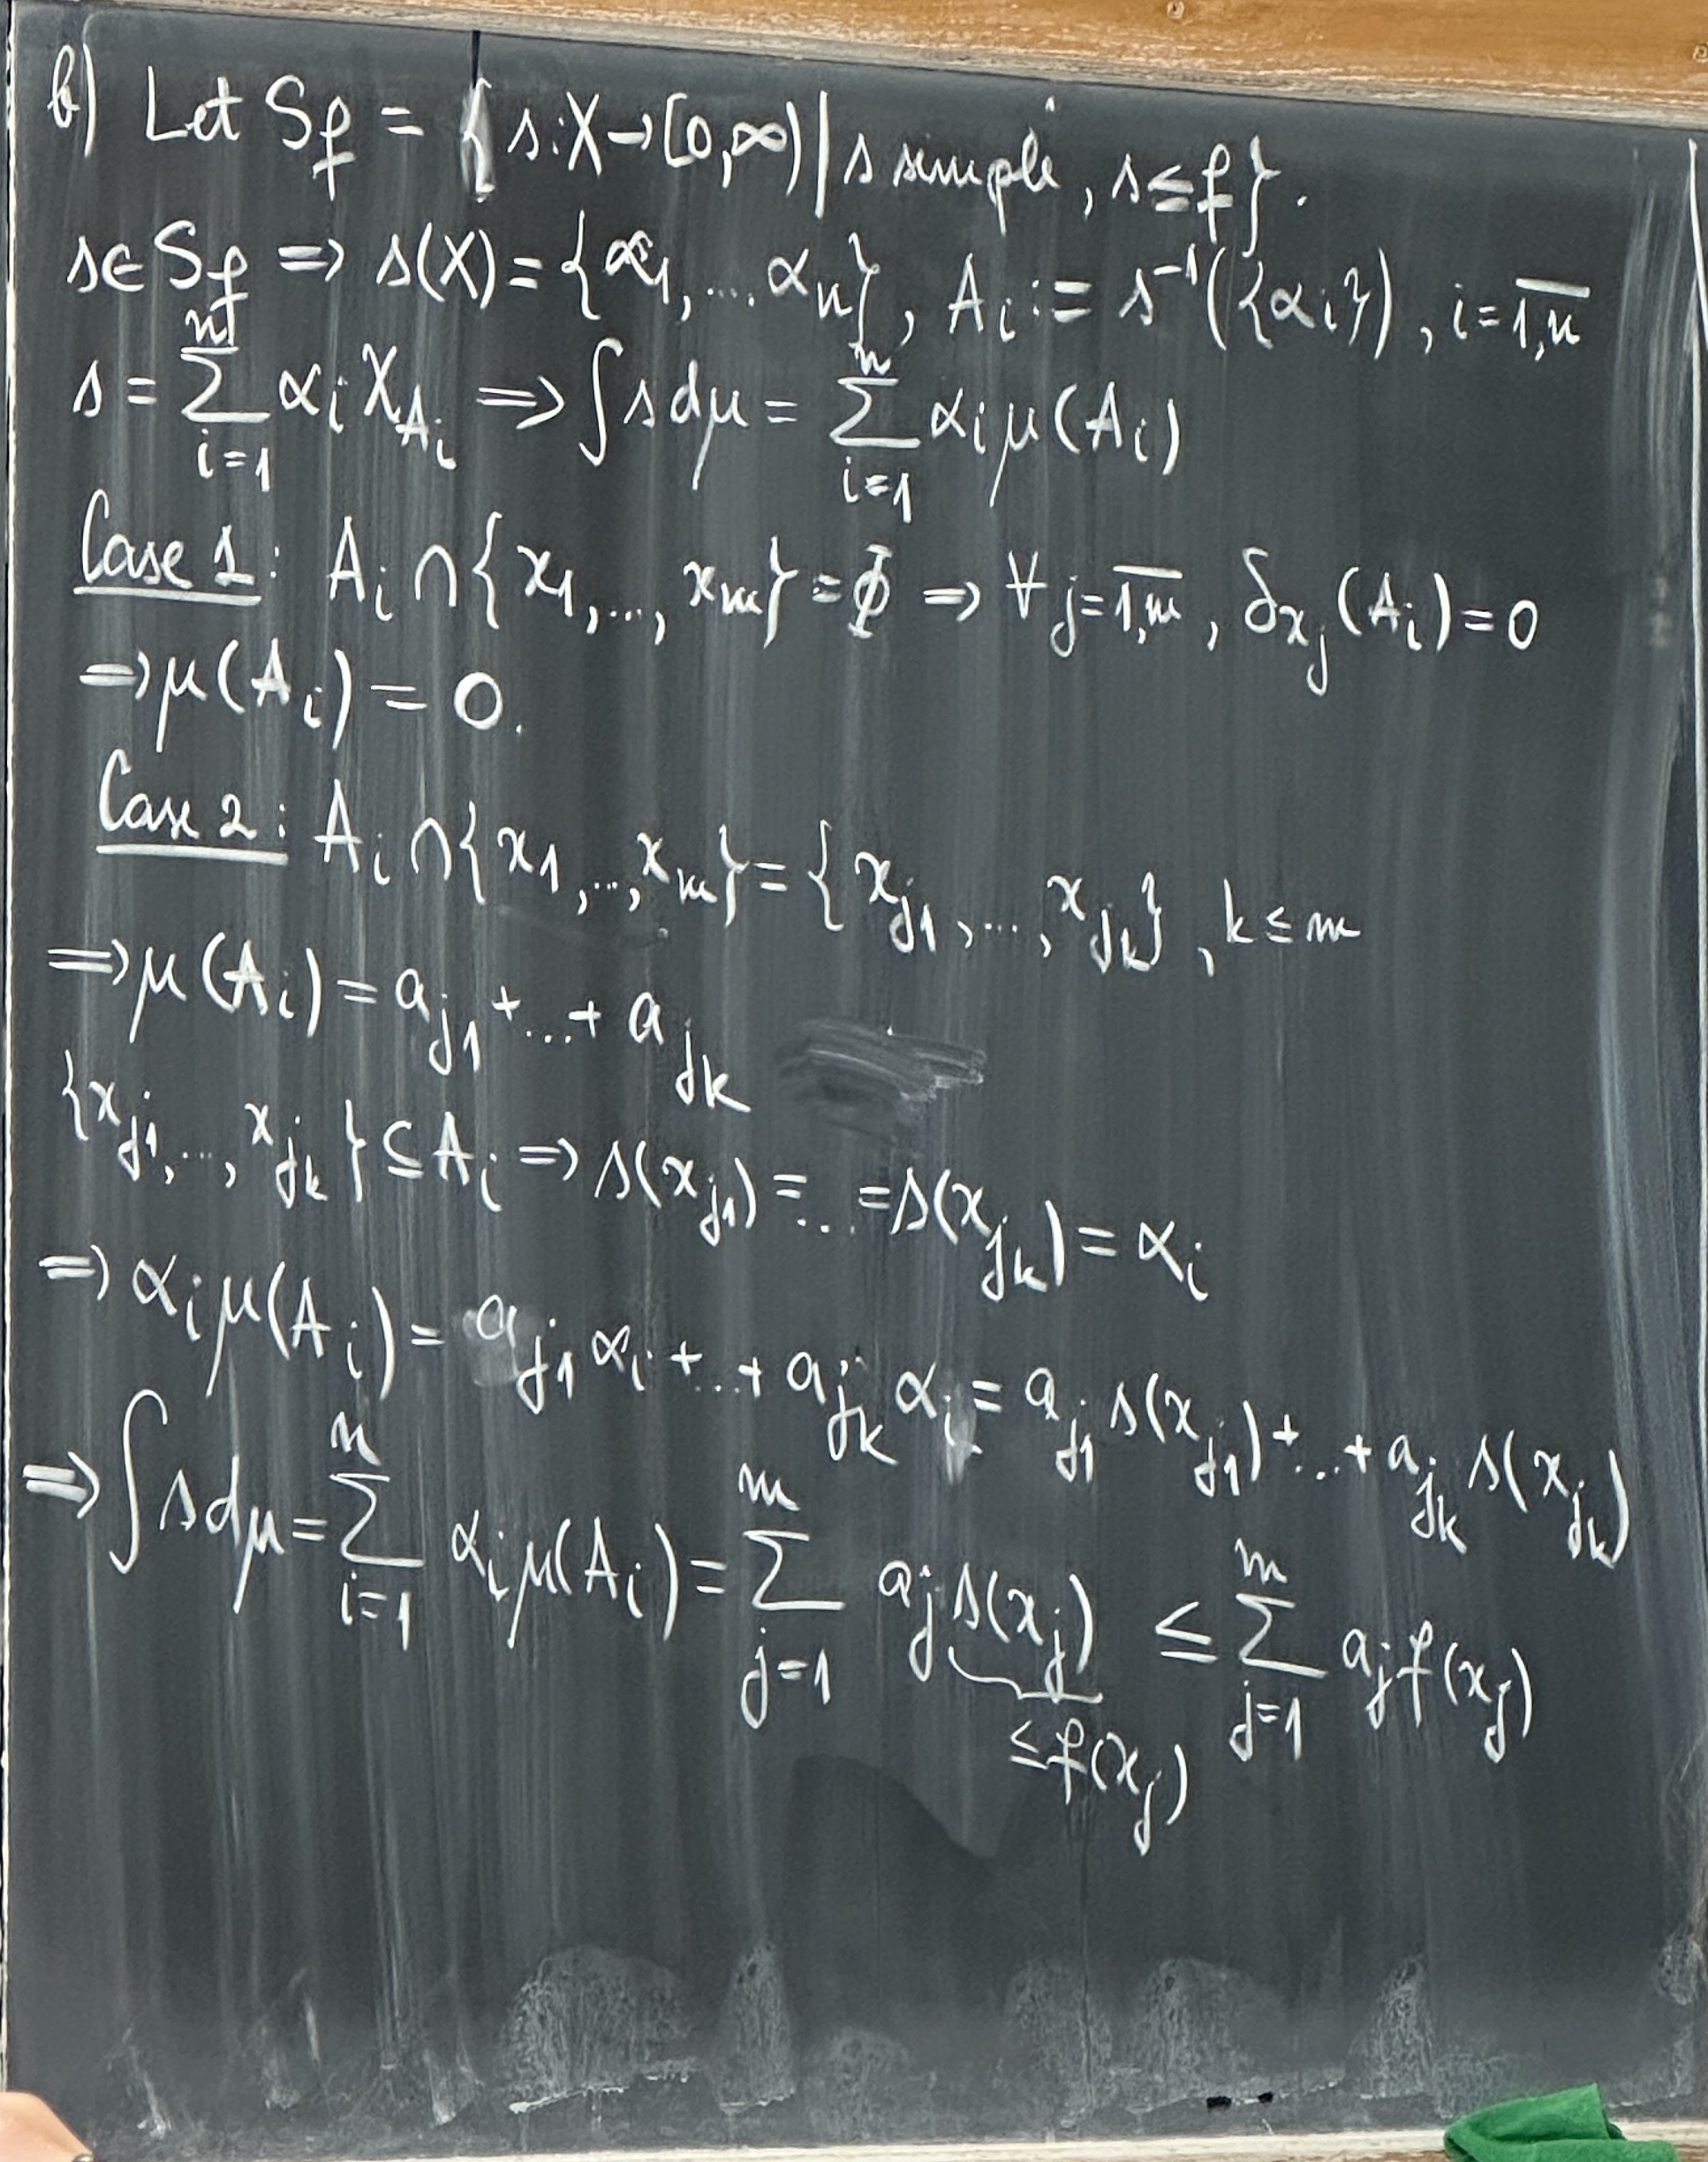 b) Let S_f = {s:X→[0,∞) | s simple, s≤f}.
s∈S_f ⇒ s(X)={α₁,...αₙ}, A_i := s⁻¹({α_i}), i=\overline{1,n}
s = ∑_{i=1}^{n} α_i χ_{A_i} ⇒ ∫s dμ = ∑_{i=1}^{n} α_i μ(A_i)
Case 1: A_i ∩ {x₁,..., x_m} = ∅ ⇒ ∀ j=\overline{1,m}, δ_{x_j}(A_i) = 0
⇒ μ(A_i) = 0.
Case 2: A_i ∩ {x₁,..., x_m} = {x_{j₁},..., x_{j_k}}, k ≤ m
⇒ μ(A_i) = a_{j₁} +...+ a_{j_k}
{x_{j₁},..., x_{j_k}} ⊆ A_i ⇒ s(x_{j₁}) = ... = s(x_{j_k}) = α_i
⇒ α_i μ(A_i) = a_{j₁} α_i +...+ a_{j_k} α_i = a_{j₁} s(x_{j₁}) +...+ a_{j_k} s(x_{j_k})
⇒ ∫s dμ = ∑_{i=1}^{n} α_i μ(A_i) = ∑_{j=1}^{m} a_j s(x_j) ≤ ∑_{j=1}^{m} a_j f(x_j)
≤f(x_j)